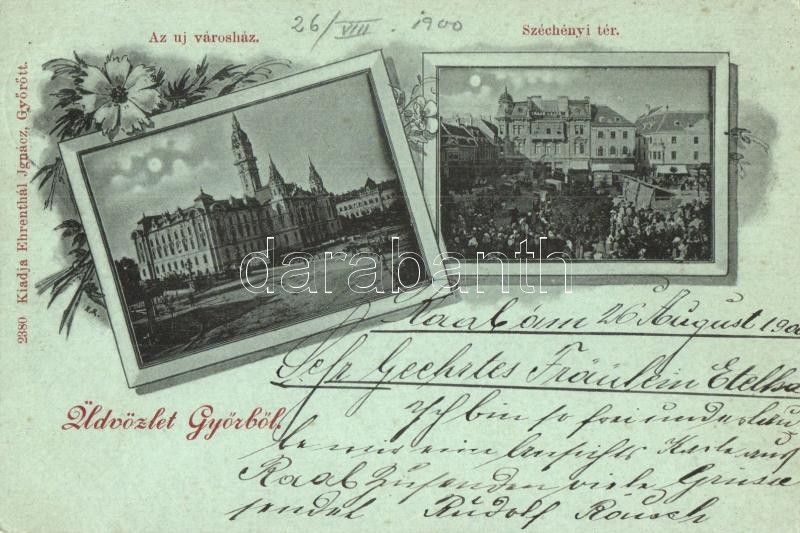 26/VIII. 1900
Az uj városház.
Széchényi tér.
2380 Kiadja Ehrenthál Jgnácz, Győrött.
darabanth
Üdvözlet Győrből.
Raab am 26 August 1900
Sehr Geehrtes Fräulein Etelka
Ich bin so frei und erlau
be mir eine Ansichts Karte aus
Raab Zusenden viele Grüsse
sendet Rudolf Rausch